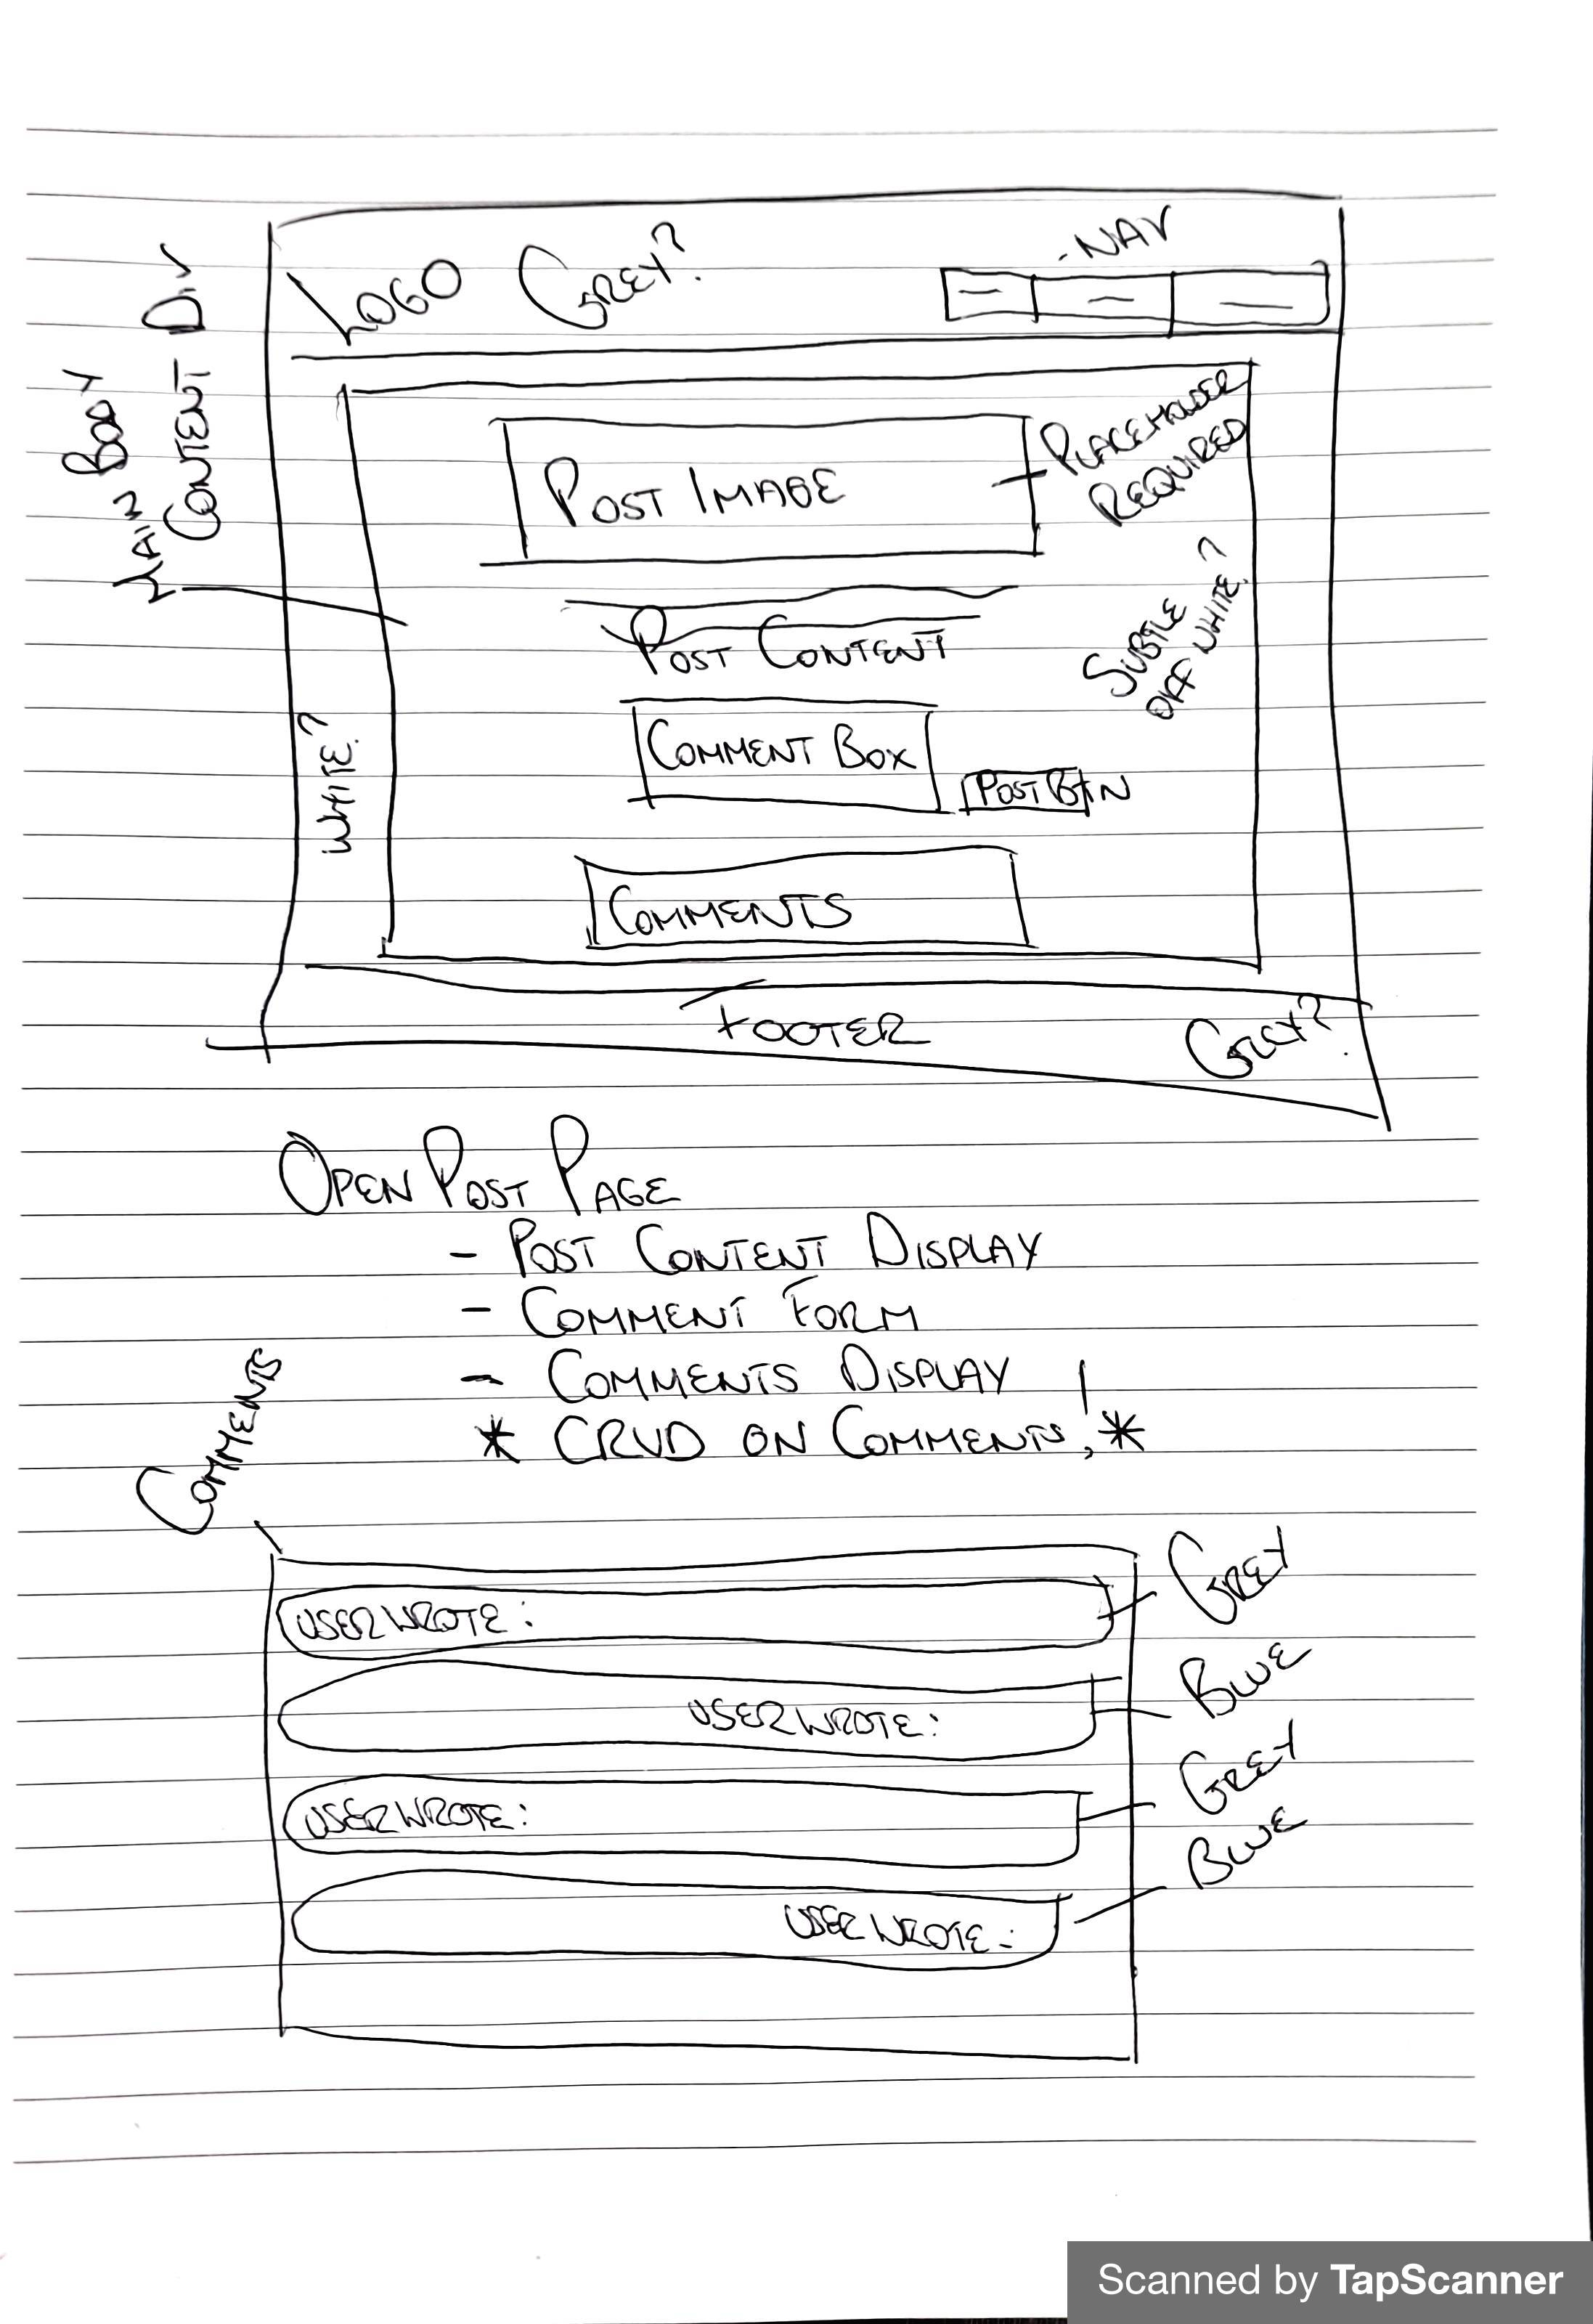 LOGO
GREY?
-NAV
MAIN BODY
CONTENT DIV
POST IMAGE
PLACEHOLDER
REQUIRED
POST CONTENT
SUBTLE
OFF WHITE?
WHITE?
COMMENT BOX
POST BTN
COMMENTS
FOOTER
GREY?
OPEN POST PAGE
- POST CONTENT DISPLAY
- COMMENT FORM
- COMMENTS DISPLAY
* CRUD ON COMMENTS! *
COMMENTS
USER WROTE:
GREY
USER WROTE:
BLUE
USER WROTE:
GREY
USER WROTE:
BLUE
Scanned by TapScanner